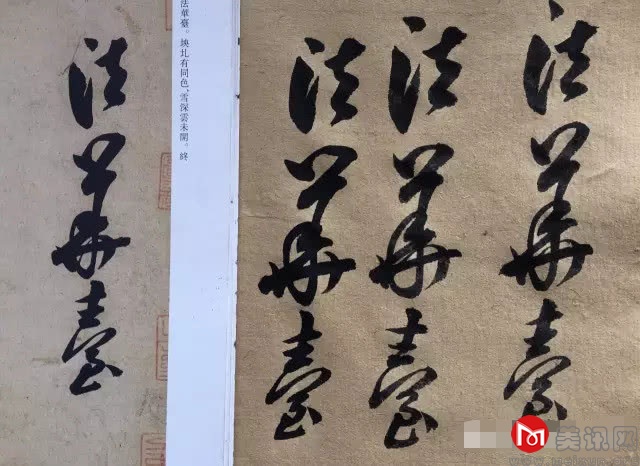 法華臺
法華臺。块圠有同色,雪深雲未開。終
法華臺
法華臺
法華臺
美讯网